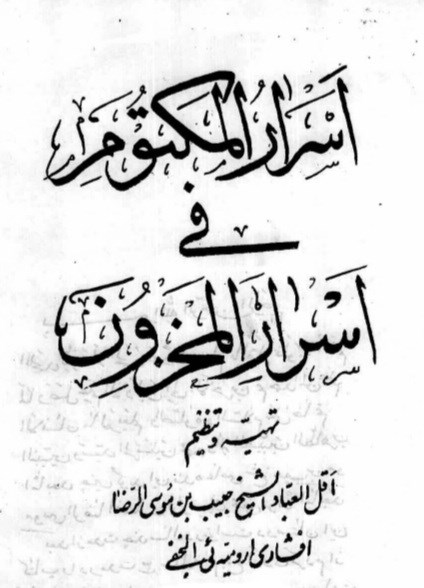 اسرار المکتوم
في
اسرار المخزون
تهیه وتنظیم
اقل العباد الشیخ حبیب بن موسی الرضا
افشاری ارومیه ئی النجفی